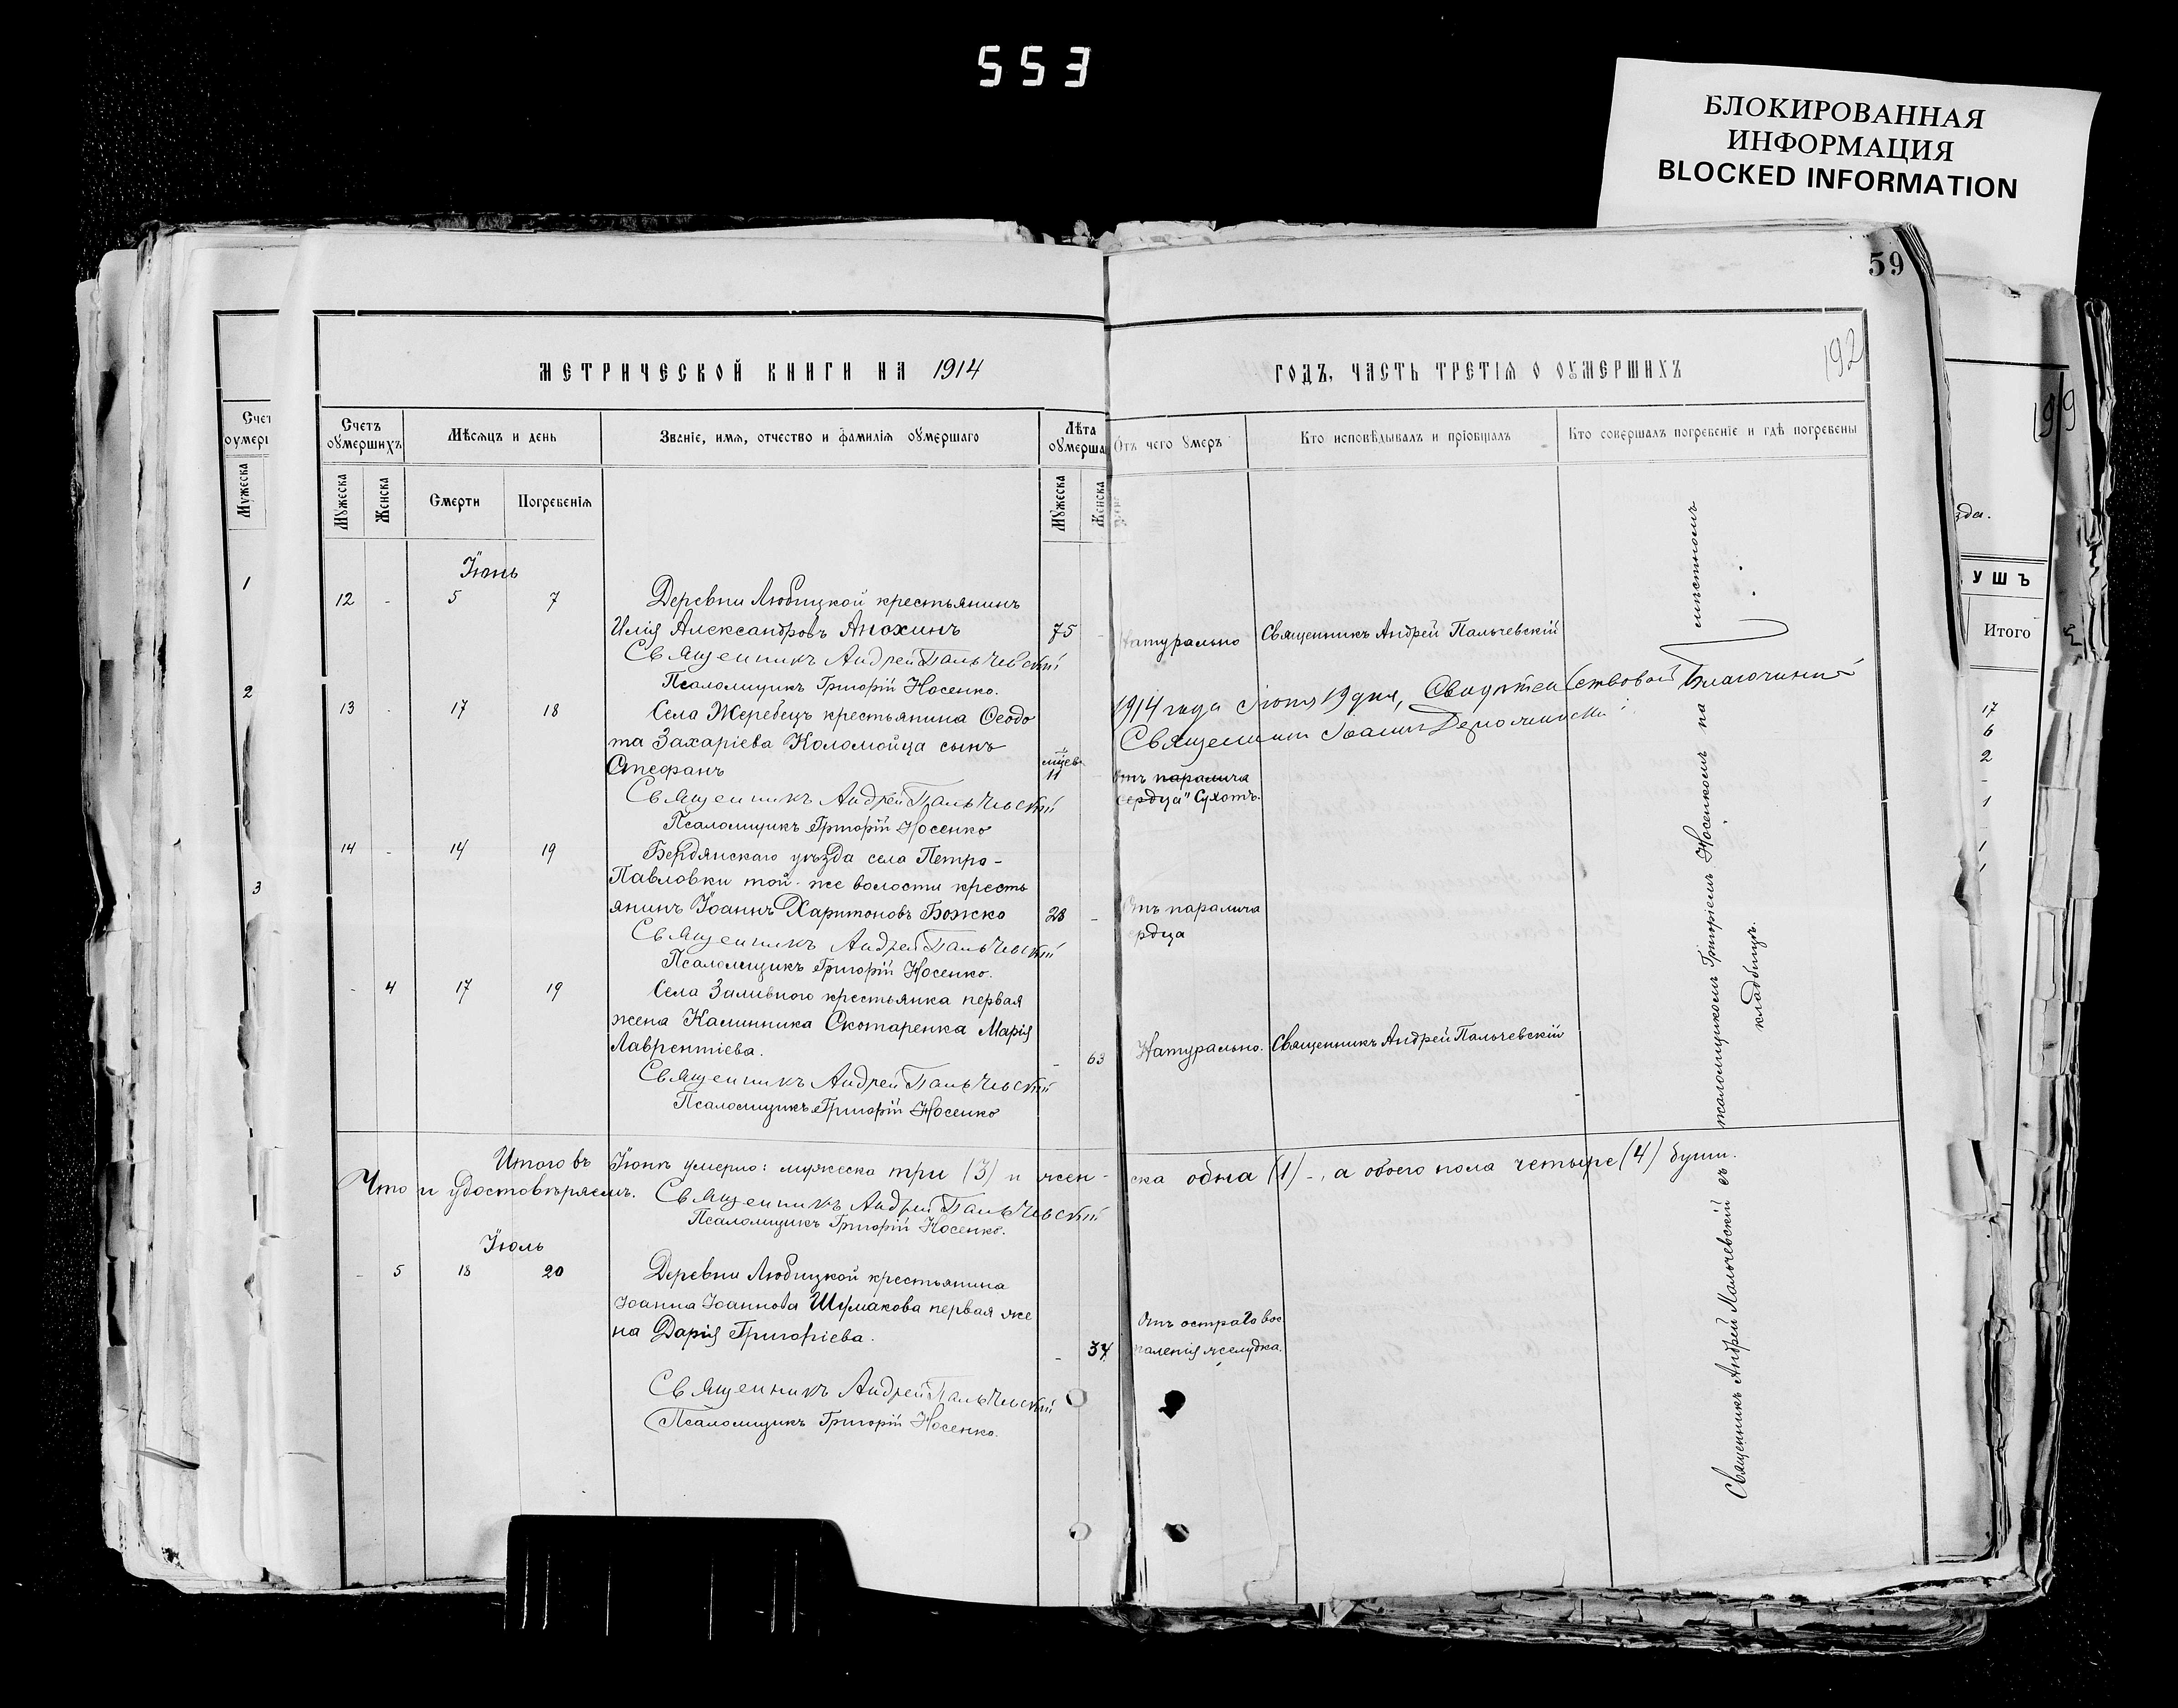 553
БЛОКИРОВАННАЯ
ИНФОРМАЦИЯ
BLOCKED INFORMATION
59
192
199
МЕТРИЧЕСКОЙ КНИГИ НА 1914
ГОДЪ, ЧАСТЬ ТРЕТІЯ О ОУМЕРШИХЪ
Счетъ оумершихъ
Мѣсяцъ и день
Званіе, имя, отчество и фамилія оумершаго
Лѣта оумерша
Отъ чего умеръ
Кто исповѣдывалъ и пріобщалъ
Кто совершалъ погребеніе и гдѣ погребены
Мужеска
Женска
Смерти
Погребенія
Мужеска
Женска
Іюнь
12 - 5 7 Деревни Любицкой крестьянинъ
Илія Александровъ Анохинъ 75 - Натурально Священникъ Андрей Пальчевскій
Священникъ Андрей Пальчевскій
Псаломщикъ Григорій Носенко.
13 - 17 18 Села Жеребецъ крестьянина Ѳеодо
та Захаріева Коломойца сынъ
Стефанъ 11 Отъ паралича
сердца" Сухотъ.
1914 года Іюля 19 дня, Свидѣтельствовалъ Благочинный
Священникъ Іоаннъ
Священникъ Андрей Пальчевскій
Псаломщикъ Григорій Носенко
14 - 14 19 Бердянскаго уѣзда села Петро-
Павловки той-же волости кресть
янинъ Іоаннъ Харитоновъ Божко 28 - Отъ паралича
ердца
Священникъ Андрей Пальчевскій
Псаломщикъ Григорій Носенко.
- 4 17 19 Села Заливного крестьянка первая
жена Калинника Скотаренка Марія
Лаврентіева. - 63 Натурально. Священникъ Андрей Пальчевскій
Священникъ Андрей Пальчевскій
Псаломщикъ Григорій Носенко
Итого въ Іюнѣ умерло: мужеска три (3) и жен-ска одна (1) -, а обоего пола четыре (4) души.
Что и удостовѣряемъ. Священникъ Андрей Пальчевскій
Псаломщикъ Григорій Носенко.
Іюль
- 5 18 20 Деревни Любицкой крестьянина
Іоанна Іоаннова Шумакова первая же
на Дарія Григоріева. - 37 Отъ остраго вос
паленія желудка.
Священникъ Андрей Пальчевскій
Псаломщикъ Григорій Носенко.
Священникъ Андрей Пальчевскій съ псаломщикомъ Григоріемъ Носенкомъ на мѣстномъ
кладбищѣ.
Счет
оумерш
Мужеска
1
2
3
зда.
УШЪ
Итого
17
6
2
-
1
1
1